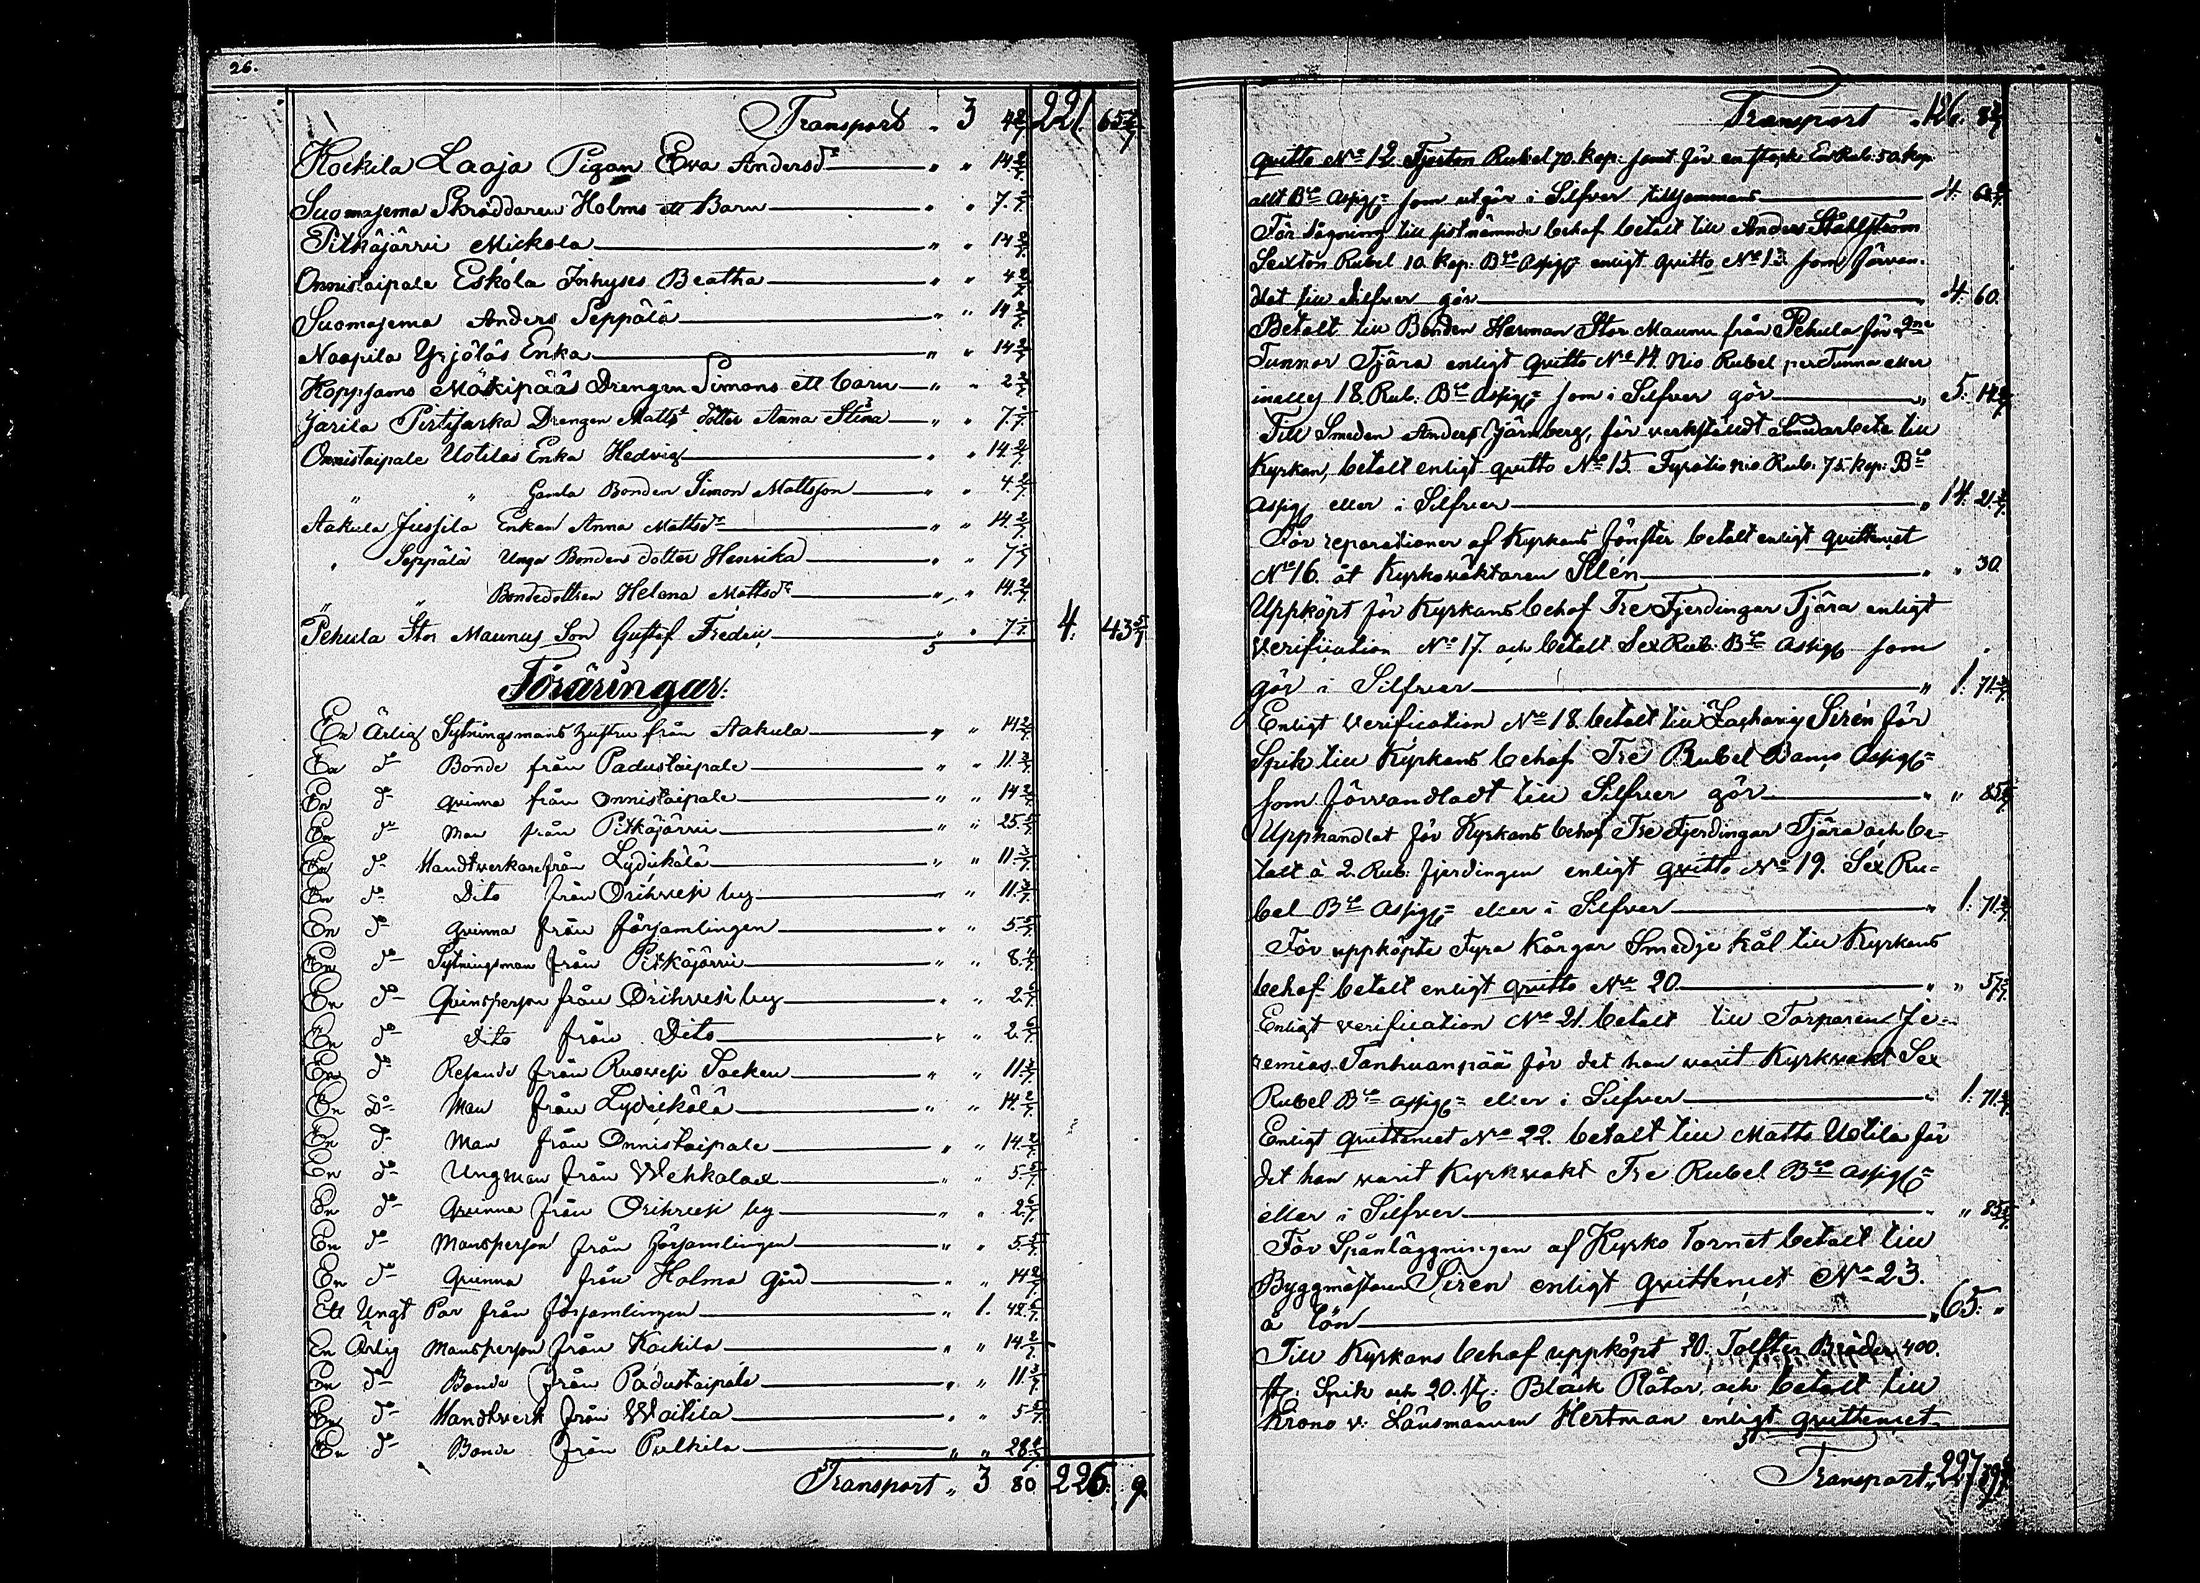 26.
Transport " 3 42/7 221. 65 5/7
Kockila Laaja Pigan Eva Andersdr " " 14 2/7
Suomasema Skräddaren Holms ett Barn " " 7. 1/7
Pitkäjärvi Mickola " " 14 2/7
Onnistaipale Eskola Inhyses Beatha " " 4 2/7
Suomasema Anders Seppälä " " 14 2/7
Naapila Yrjölas Enka " " 14 2/7
Hoppsamo Mäkipääs Drengen Simons ett barn " " 2 2/7
Järilä Drengen Matts dotter Anna Stina " " 7. 1/7
Onnistaipale Uotilas Enka Hedvig " " 14. 2/7
" " Gamla Bonden Simon Mattsson " " 4. 2/7
Aakula Jussila Enkan Anna Mattsdr " " 14. 2/7
" Seppälä Unga Bondens dotter Henrika " " 7 1/7
" " Bondedottren Helena Mattsdr " " 14. 2/7
Pehula Stor Maunus Son Gustaf Fredric " " 7 1/7 4. 43 5/7
Föräringar:
En Ärlig Sytningsmans hustru från Aakula " " 14 2/7
En do Bonde från Padustaipale " " 11. 3/7
En do qvinna från Onnistaipale " " 14 2/7
En do Man från Pitkäjärvi " " 25. 5/7
En do Handtverkare från Lydiikälä " " 11 3/7
En do Dito från Orihvesi by " " 11 3/7
En do qvinna från församlingen " " 5 5/7
En do Sytningsman från Pitkäjärvi " " 8. 4/7
En do Qvinsperson från Orihvesi by " " 2. 6/7
En do Dito från Dito " " 2. 6/7
En do Resande från Ruovesi Socken " " 11 3/7
En Do Man från Lydiikälä " " 14. 2/7
En do Man från Onnistaipale " " 14. 2/7
En do Ungman från Wehkalax " " 5. 5/7
En do Qvinna från Orihvesi by " " 2 6/7
En do Mansperson från församlingen " " 5. 5/7
En do Qvinna från Holma Gård " " 14 2/7
Ett Ungt Par från församlingen " 1. 42. 6/7
En Ärlig Mansperson från Kockila " " 14 2/7
En do Bonde från Padustaipale " " 11 3/7
En do Handtverk från Waitila " " 5 5/7
En do Bonde från Pulkila " " 28 4/7
Transport " 3 80 226. 9.
Transport " 126. 8 2/7
qvitto No 12 Fjorton Rubel 70. kop: samt för en stock En Rub: 50. kop
allt Bco Assig= som utgör i Silfver tillsammans " 4. 62 6/7
För sågning till sistnämnde behof betalt till Anders Ståhlström
Sexton Rubel 10. Kop: Bco Assig= enligt qvitto No 13. som förvan-
dlat till Silfver gör " 4. 60.
Betalt till Bonden Herman Stor Maunu från Pehula för 2ne
Tunnor Tjära enligt qvitto No 14. Nio Rubel per Tunna eller
inalles 18. Rub: Bco Assig= som i Silfver gör " 5. 14 2/7
Till Smeden Anders Järnberg, för verkstäldt Smedarbete till
Kyrkan, betalt enligt qvitto No 15. Fyratio nio Rub: 75. kop: Bco
Assig eller i Silfver " 14. 21. 3/7
För reparationer af Kyrkans fönster betalt enligt qvittencet
No 16. åt Kyrkoväktaren Silén " " 30.
Uppköpt för Kyrkans behof Tre Fjerdingar Tjära enligt
Verification No 17. och betalt Sex Rub. Bco Assig som
gör i Silfver " 1. 71. 3/7
Enligt Verification No 18. betalt till Zacharis Sirén för
Spik till Kyrkans behof Tre Rubel Banco Assig=
som förvandladt till Silfver gör " " 85 5/7
Upphandlat för Kyrkans behof Tre Fjerdingar Tjära och be-
talt à 2. Rub: fjerdingen enligt qvitto No 19. Sex Ru-
bel Bco Assig= eller i Silfver " 1. 71. 3/7
För uppköpte Fyra kårgar Smedje kål till Kyrkans
behof betalt enligt qvitto No 20 " " 57 1/7
Enligt verification No 21. betalt till Torparen Je-
remias Tanhuanpää för det han varit Kyrkvakt Sex
Rubel Bco Assig= eller i Silfver " 1. 71 3/7
Enligt qvittencet No 22. betalt till Matts Uotila för
det han varit Kyrkvakt Tre Rubel Bco Assig=
eller i Silfver " " 85 5/7
För Spånläggningen af Kyrko Tornet betalt till
Byggmästaren Siren enligt qvittencet No 23.
à lön " 65. "
Till Kyrkans behof uppköpt 20. Tolfter Bräder 400.
st: Spik och 20. st: Bläck Plåtar, och betalt till
Krono v. Länsmannen Hertman enligt qvittencet
Transport " 227